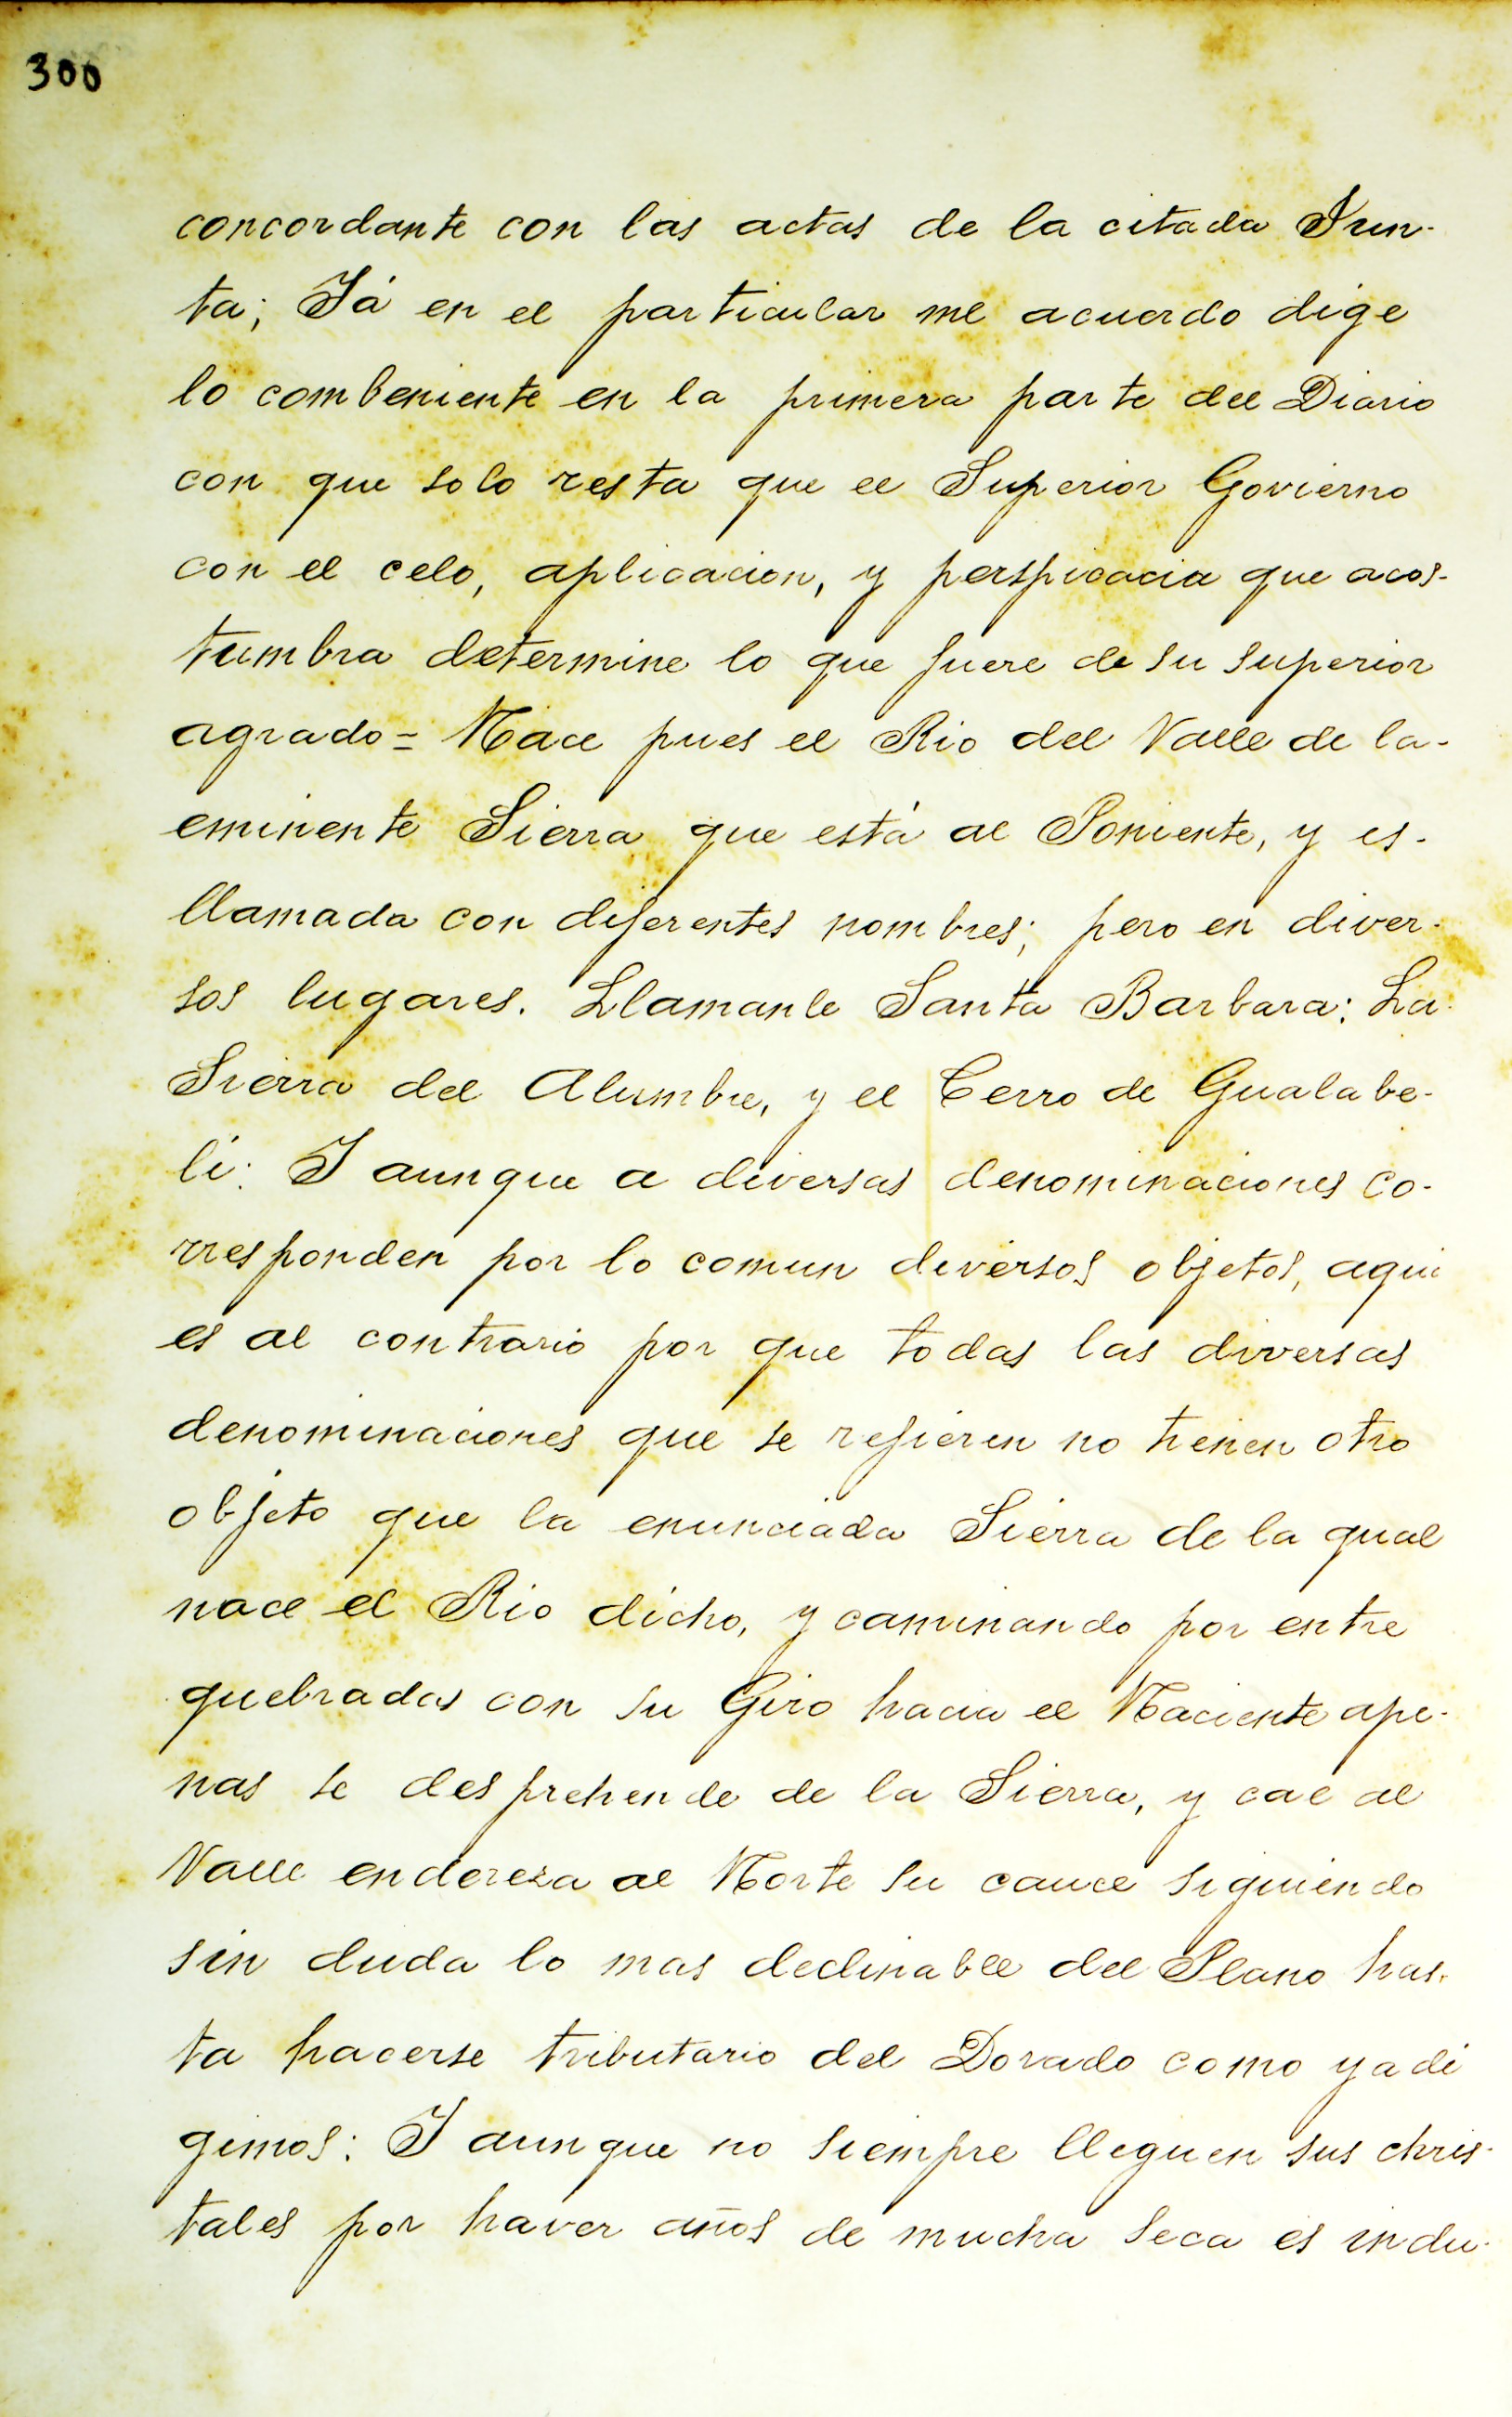 300
concordante con las actas de la citada Jun-
ta; Iá en el particular me acuerdo dige
lo combeniente en la primera parte del Diario
con que solo resta que el Superior Govierno
con el celo, aplicacion, y perspicacia que acos-
tumbra determine lo que fuere de su superior
agrado = Nace pues el Rio del Valle de la-
eminente Sierra que está al Poniente, y es-
llamada con diferentes nombres; pero en diver-
sos lugares. Llamanle Santa Barbara: La-
Sierra del Alumbre, y el Cerro de Gualabe-
li: I aunque a diversas denominaciones co-
rresponden por lo comun diversos objetos, aqui
es al contrario por que todas las diversas
denominaciones que se refieren no tienen otro
objeto que la enunciada Sierra de la qual
nace el Rio dicho, y caminando por entre
quebradas con su Giro hacia el Naciente ape-
nas se desprehende de la Sierra, y cae al
Valle endereza al Norte su cauce siguiendo
sin duda lo mas declinable del Plano has-
ta hacerse tributario del Dorado como ya di
gimos: I aunque no siempre lleguen sus chris-
tales por haver años de mucha seca es indu-